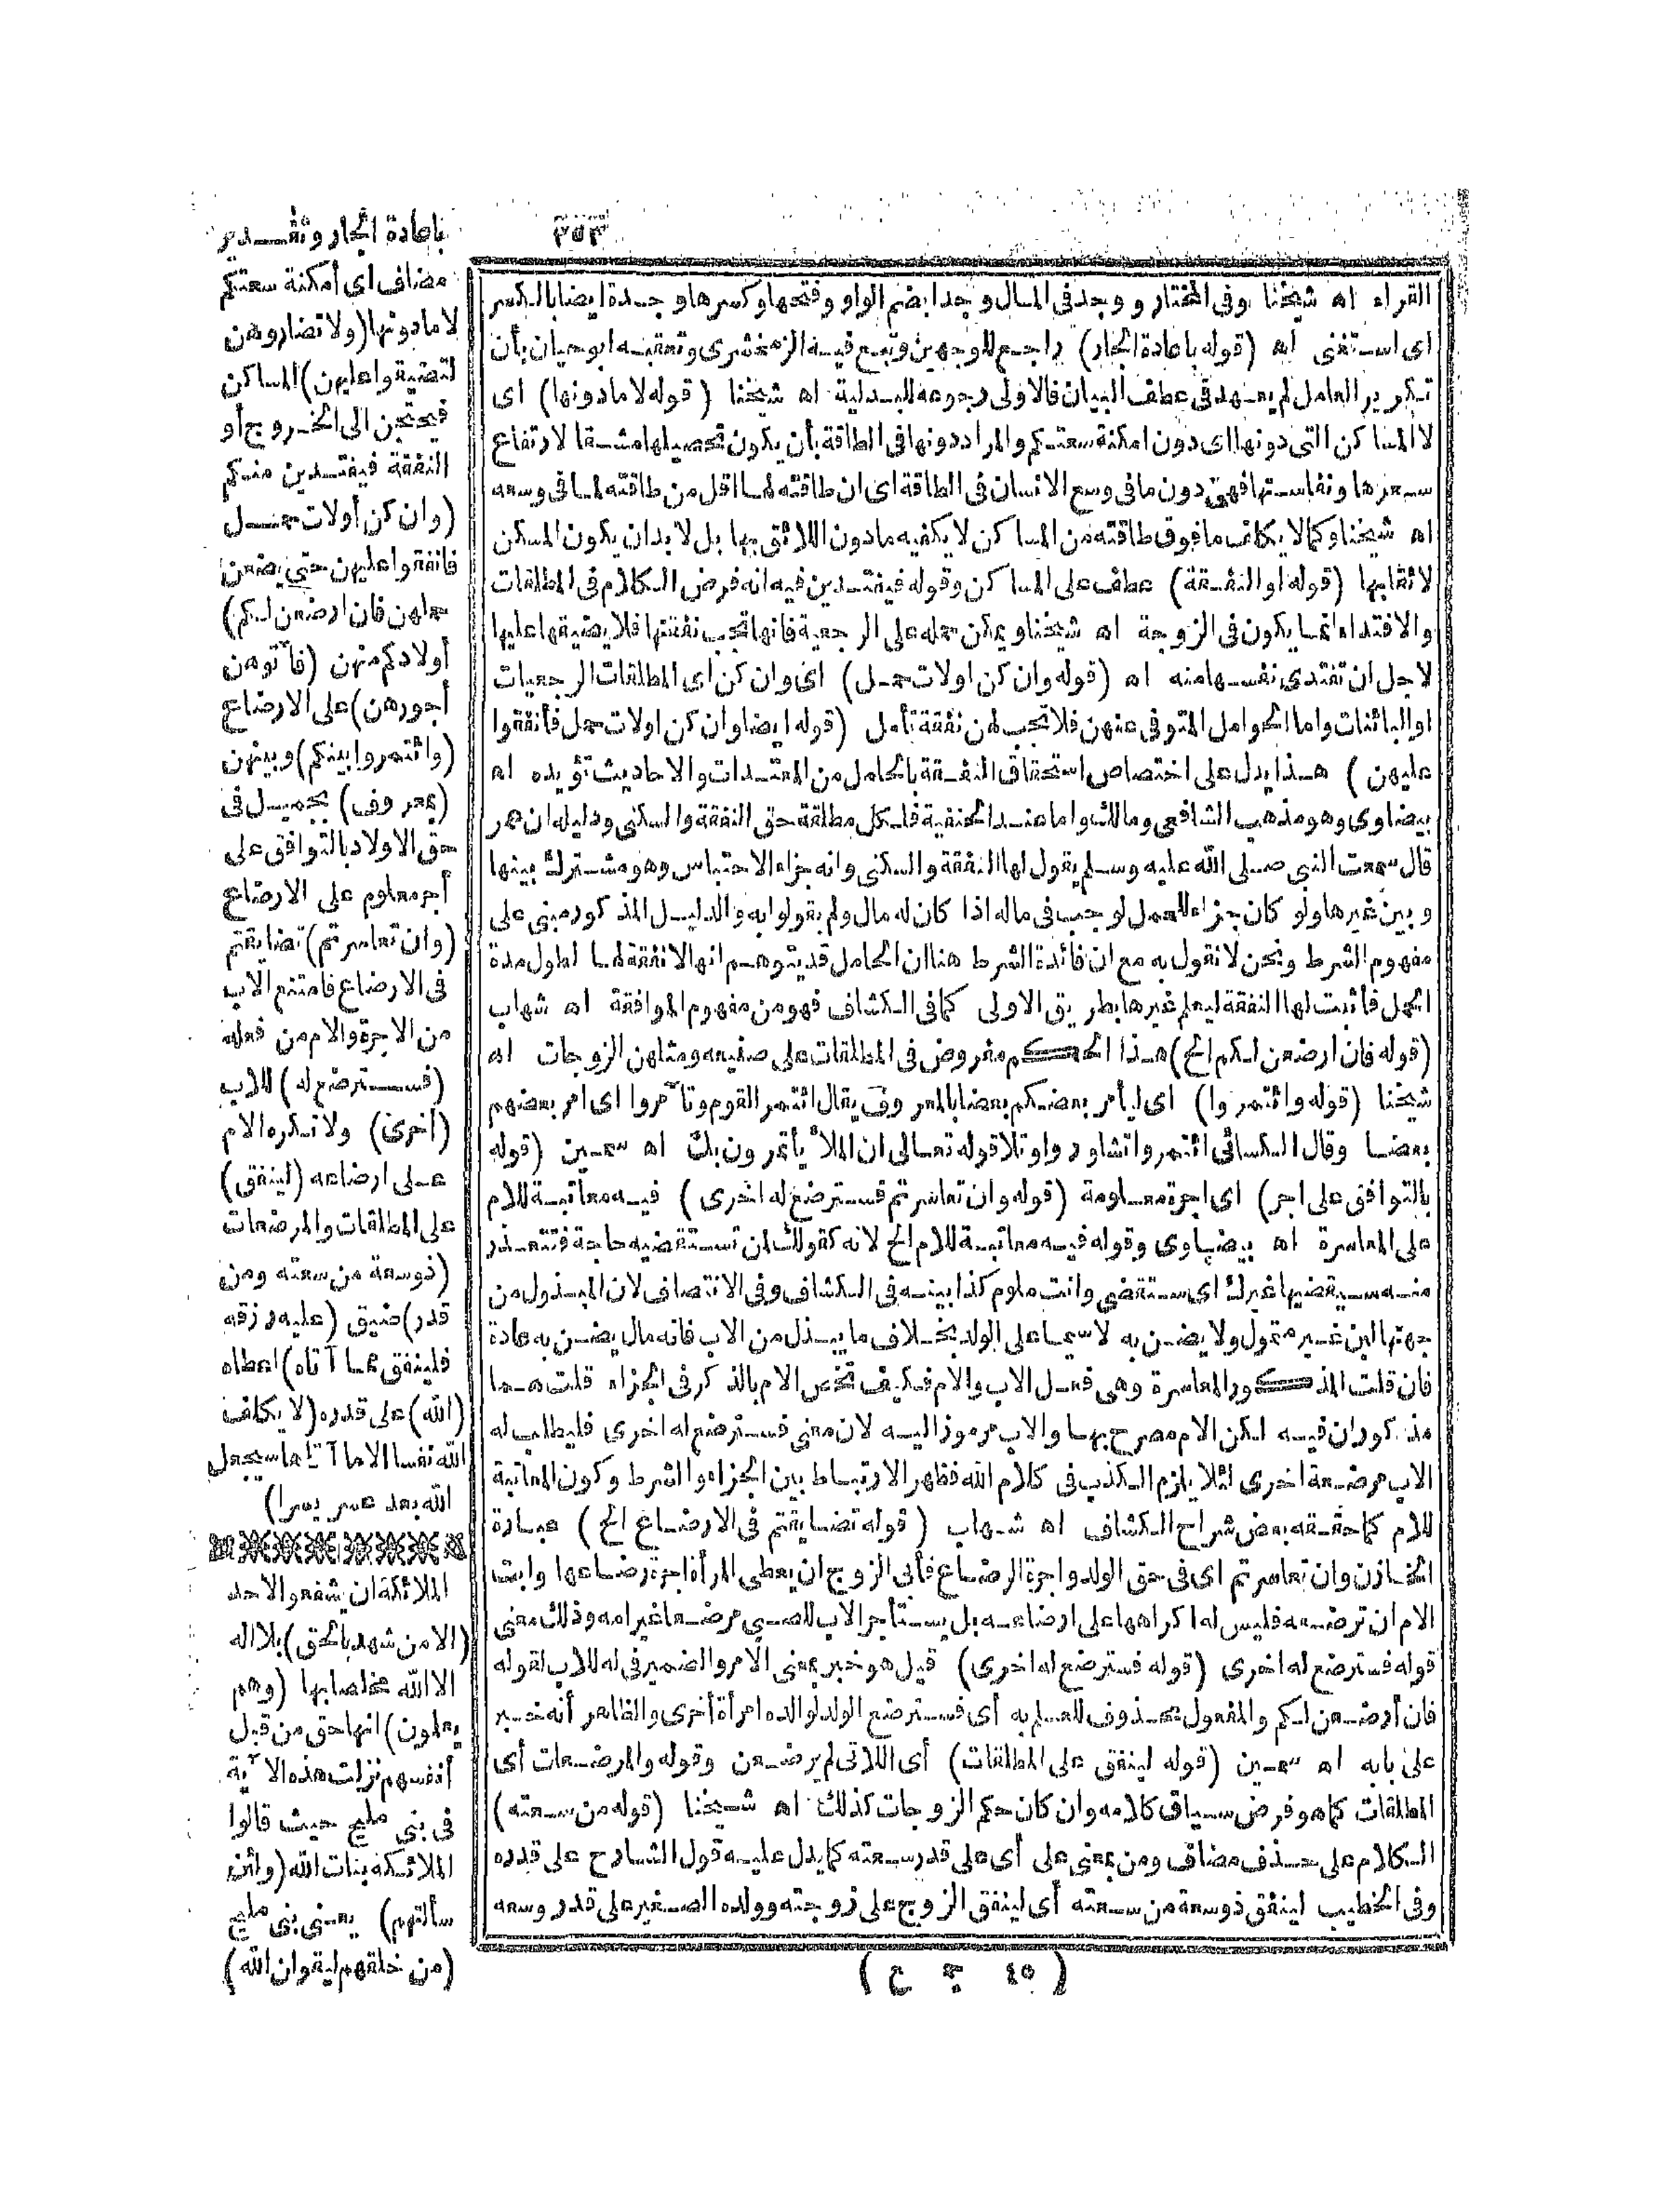 ٣٥٣
القراء اه شيخنا وفى المختار ووجد فى المال وجدا بضم الواو وفتحها وكسرها وجدة ايضا بالكسر
اى استغنى اه (قوله باعادة الجار) راجع للوجهين وتبع فيه الزمخشرى وتعقبه ابو حيان بأن
تكرير العامل لم يعهد فى عطف البيان فالاولى رجوعه للبدلية اه شيخنا (قوله لا مادونها) اى
لا المساكن التى دونها اى دون امكنة سعتكم والمراد دونها فى الطاقة بأن يكون تحصيلها مشقا لارتفاع
سعرها ونفاستها فهى دون ما فى وسع الانسان فى الطاقة اى ان طاقته لها اقل من طاقته لما فى وسعه
اه شيخنا وكما لا يكلف ما فوق طاقته من المساكن لا يكفيه مادون اللائق بها بل لا بد ان يكون المسكن
لائقا بها (قوله او النفقة) عطف على المساكن وقوله فيفتدين فيه انه فرض الكلام فى المطلقات
والافتداء انما يكون فى الزوجة اه شيخنا ويمكن حمله على الرجعية فانها تجب نفقتها فلا يضيقها عليها
لاجل ان تفتدى نفسها منه اه (قوله وان كن اولات حمل) اى وان كن اى المطلقات الرجعيات
او البائنات واما الحوامل المتوفى عنهن فلا تجب لهن نفقة تأمل (قوله ايضا وان كن اولات حمل فأنفقوا
عليهن) هذا يدل على اختصاص استحقاق النفقة بالحامل من المعتدات والاحاديث تؤيده اه
بيضاوى وهو مذهب الشافعى ومالك واما عند الحنفية فلكل مطلقة حق النفقة والسكنى ودليله ان عمر
قال سمعت النبى صلى الله عليه وسلم يقول لها النفقة والسكنى وانه جزاء الاحتباس وهو مشترك بينها
وبين غيرها ولو كان جزاء للحمل لوجب فى ماله اذا كان له مال ولم يقولوا به والدليل المذكور مبنى على
مفهوم الشرط ونحن لا نقول به مع ان فائدة الشرط هنا ان الحامل قد يتوهم انها لا نفقة لها لطول مدة
الحمل فأثبت لها النفقة ليعلم غيرها بطريق الاولى كما فى الكشاف فهو من مفهوم الموافقة اه شهاب
(قوله فان ارضعن لكم الخ) هذا الحكم مفروض فى المطلقات على صنيعه ومثلهن الزوجات اه
شيخنا (قوله وائتمروا) اى ليأمر بعضكم بعضا بالمعروف يقال ائتمر القوم وتآمروا اى امر بعضهم
بعضا وقال الكسائى ائتمروا تشاوروا وتلا قوله تعالى ان الملأ يأتمرون بك اه سمين (قوله
بالتوافق على اجر) اى اجرة معلومة (قوله وان تعاسرتم فسترضع له اخرى) فيه معاتبة للام
على المعاسرة اه بيضاوى وقوله فيه معاتبة للام الخ لانه كقولك لمن تستقضيه حاجة فتتعذر
منه سيقضيها غيرك اى ستقضى وانت ملوم كذا بينه فى الكشاف وفى الانتصاف لان المبذول من
جهتها لبن غير متمول ولا يضن به لا سيما على الولد بخلاف ما يبذل من الاب فانه مال يضن به عادة
فان قلت المذكور المعاسرة وهى فعل الاب والام فكيف تخص الام بالذكر فى الجزاء قلت هما
مذكوران فيه لكن الام مصرح بها والاب مرموز اليه لان معنى فسترضع له اخرى فليطلب له
الاب مرضعة اخرى لئلا يلزم الكذب فى كلام الله فظهر الارتباط بين الجزاء والشرط وكون المعاتبة
للام كما حققه بعض شراح الكشاف اه شهاب (قوله تضايقتم فى الارضاع الخ) عبارة
الخازن وان تعاسرتم اى فى حق الولد واجرة الرضاع فأبى الزوج ان يعطى المرأة اجرة رضاعها وابت
الام ان ترضعه فليس له اكراهها على ارضاعه بل يستأجر الاب للصبى مرضعا غير امه وذلك معنى
قوله فسترضع له اخرى (قوله فسترضع له اخرى) قيل هو خبر بمعنى الامر والضمير فى له للاب لقوله
فان أرضعن لكم والمفعول محذوف للعلم به أى فسترضع الولد لوالده امرأة أخرى والظاهر أنه خبر
على بابه اه سمين (قوله لينفق على المطلقات) أى اللاتى لم يرضعن وقوله والمرضعات أى
المطلقات كما هو فرض سياق كلامه وان كان حكم الزوجات كذلك اه شيخنا (قوله من سعته)
الكلام على حذف مضاف ومن بمعنى على أى على قدر سعته كما يدل عليه قول الشارح على قدره
وفى الخطيب لينفق ذو سعة من سعته أى لينفق الزوج على زوجته وولده الصغير على قدر وسعه
(٤٥ ج ع)
باعادة الجار وتقدير
مضاف اى أمكنة سعتكم
لا مادونها (ولا تضاروهن
لتضيقوا عليهن) المساكن
فيحتجن الى الخروج أو
النفقة فيفتدين منكم
(وان كن أولات حمل
فانفقوا عليهن حتى يضعن
حملهن فان ارضعن لكم)
أولادكم منهن (فآتوهن
أجورهن) على الارضاع
(وائتمروا بينكم) وبينهن
(بمعروف) بجميل فى
حق الاولاد بالتوافق على
أجر معلوم على الارضاع
(وان تعاسرتم) تضايقتم
فى الارضاع فامتنع الاب
من الاجرة والام من فعله
(فسترضع له) للاب
(أخرى) ولا تكره الام
على ارضاعه (لينفق)
على المطلقات والمرضعات
(ذو سعة من سعته ومن
قدر) ضيق (عليه رزقه
فلينفق مما آتاه) اعطاه
(الله) على قدره (لا يكلف
الله نفسا الا ما آتاها سيجعل
الله بعد عسر يسرا)
الملائكة ان يشفعوا لاحد
(الا من شهد بالحق) بلا اله
الا الله مخلصا بها (وهم
يعلمون) انها حق من قبل
أنفسهم نزلت هذه الآية
فى بنى مليح حيث قالوا
الملائكة بنات الله (ولئن
سألتهم) يعنى بنى مليح
(من خلقهم ليقولن الله)